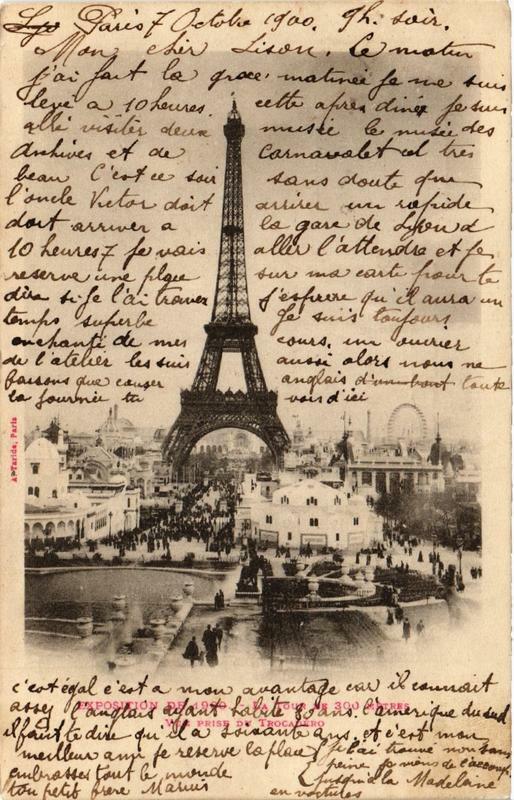 Paris 7 Octobre 1900. 9h. soir.
Mon cher Lison. Ce matin
j'ai fait la grace matinée je me suis
levé a 10 heures. cette après diner je suis
allé visiter deux musée le musée des
Archives et de Carnavalet cel tres
beau C'est ce soir sans doute que
l'oncle Victor doit arriver un rapide
doit arriver a la gare de Lyon a
10 heures 7 je vais aller l'attendre et je
reserve une place sur ma carte pour te
dire si je l'ai trouver j'espere qu'il aura un
temps superbe Je suis toujours
enchanté de mes cours, un ouvrier
de l'atelier les suis aussi alors nous ne
faisons que causer anglais toute
la journée tu vois d'ici
A. Taride, Paris
EXPOSITION DE 1900 - LA TOUR DE 300 MÈTRES
VUE PRISE DU TROCADÉRO
c'est égal c'est a mon avantage car il connait
assez l'anglais ayant habité 8 ans l'amerique du sud
il faut te dire qu'il a soixante ans et c'est mon
meilleur ami je reserve la place
embrasses tout le monde
ton petit frere Marius
je l'ai trouvé non sans
peine je viens de l'accomp.
jusqu'a la Madeleine
en voitures